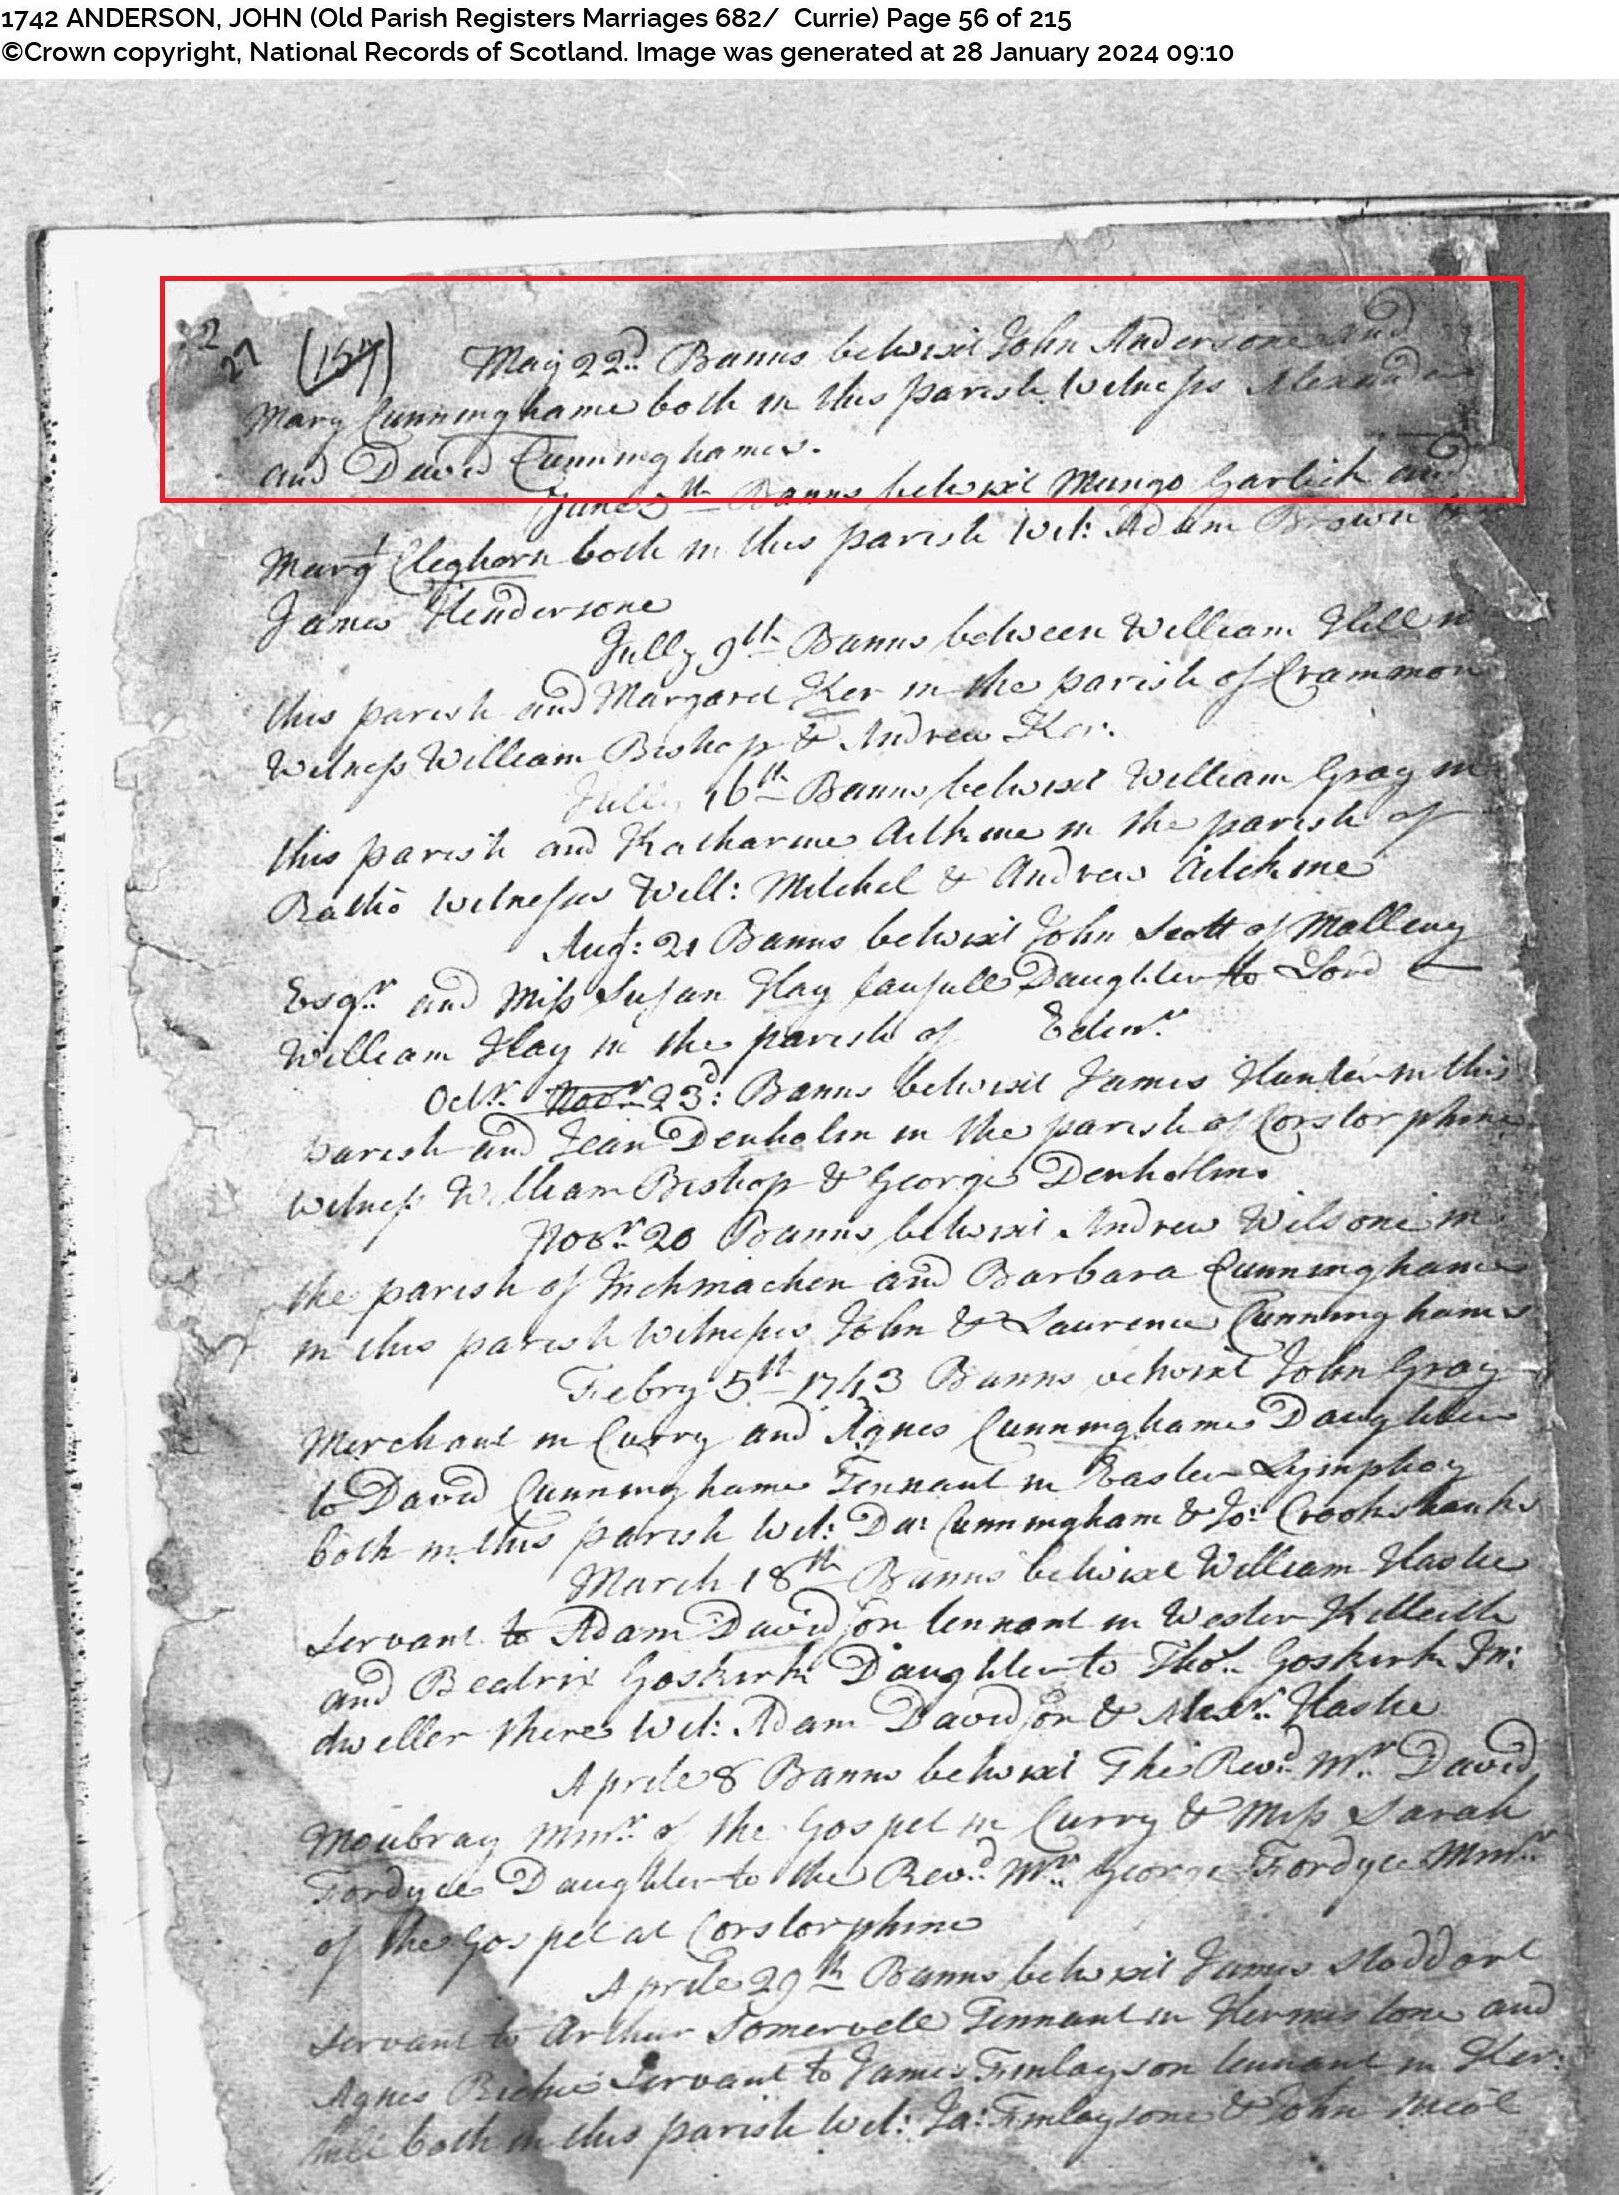 1742 ANDERSON, JOHN (Old Parish Registers Marriages 682/ Currie) Page 56 of 215
©Crown copyright, National Records of Scotland. Image was generated at 28 January 2024 09:10
2
27 (157) May 22d. Banns betwixt John Andersone and
Mary Cunninghame both in this parish Witness Alexander
and David Cunninghames.
June Banns betwixt Mungo Garlick and
Margt Cleghorn both in this parish Wit: Adam Brown &
James Hendersone
Jully 9th Banns between William Hill in
this parish and Margaret Ker in the parish of Crammon
Witness William Bishop & Andrew Ker.
Jully 16th Banns betwixt William Gray in
this parish and Katharine Aitkine in the parish of
Ratho witnesses Will: Mitchel & Andrew Aitchine
Augt: 21 Banns betwixt John Scott of Malleny
Esqr. and Miss Susan Hay laufull Daughter to Lord
William Hay in the parish of Edinr.
Octr. Novr. 23d: Banns betwixt James Hunter in this
parish and Jean Denholm in the parish of Corstorphine
witness William Bishop & George Denholm.
Novr. 20 Banns betwixt Andrew Wilsone in
the parish of Inchmachen and Barbara Cunninghame
in this parish Witnesses John & Laurence Cunninghames
Febry 5th 1743 Banns betwixt John Gray
Merchant in Curry and Agnes Cunninghame Daughter
to David Cunninghame Tennant in Easter Lymphoy
both in this parish Wit: Da: Cunningham & Jo: Crookshanks
March 18th Banns betwixt William Hastie
Servant to Adam Davidson tennant in Wester Killeith
and Beatrix Goskirk Daughter to Thos. Goskirk In:
dweller there Wit: Adam Davidson & Alexr. Hastie
Aprile 8 Banns betwixt The Revd. Mr. David
Moubray Minr. of the Gospel in Curry & Miss Sarah
Fordyce Daughter to the Revd. Mr. George Fordyce Minr.
of the Gospel at Corstorphine
Aprile 29th Banns betwixt James Stoddart
servant to Arthur Somervele Tennant in Hermistone and
Agnes Richie Servant to James Finlayson tennant in Her:
hill both in this parish Wit: Ja: Finlaysone & John Nicol